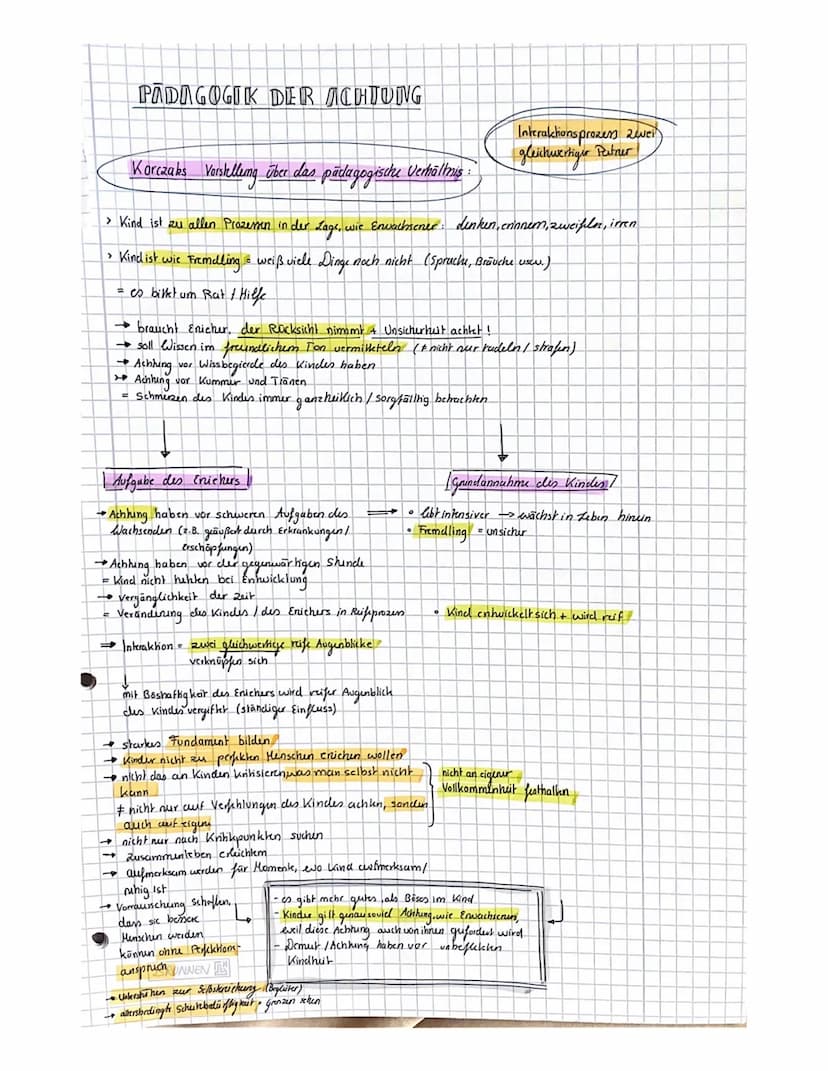 PÄDAGOGIK DER ACHTUNG
Interaktionsprozess zwei
gleichwertiger Partner
Korczaks Vorstellung über das pädagogische Verhältnis:
> Kind ist zu allen Prozessen in der Lage, wie Erwachsener: denken, erinnern, zweifeln, irren
> Kind ist wie Fremdling = weiß viele Dinge noch nicht (Sprache, Bräuche usw.)
= es bittet um Rat / Hilfe
→ braucht Erzieher, der Rücksicht nimmt + Unsicherheit achtet!
→ soll Wissen im freundlichem Ton vermitteln (≠ nicht nur tadeln / strafen)
→ Achtung vor Wissbegierde des Kindes haben
→ Achtung vor Kummer und Tränen
= Schmerzen des Kindes immer ganzheitlich / sorgfältig betrachten
Aufgabe des Erziehers
Grundannahme des Kindes
→ Achtung haben vor schweren Aufgaben des
Wachsenden (z.B. geäußert durch Erkrankungen /
Erschöpfungen)
• lebt intensiver → wächst in Leben hinein
• Fremdling = unsicher
→ Achtung haben vor der gegenwärtigen Stunde
= Kind nicht hetzen bei Entwicklung
→ Vergänglichkeit der Zeit
= Veränderung des Kindes / des Erziehers in Reifeprozess
• Kind entwickelt sich + wird reif
⇒ Interaktion = zwei gleichwertige reife Augenblicke
verknüpfen sich
↓
mit Boshaftigkeit des Erziehers wird reifer Augenblick
des Kindes vergiftet (ständiger Einfluss)
→ starkes Fundament bilden
→ Kinder nicht zu perfekten Menschen erziehen wollen
→ nicht das an Kindern kritisieren, was man selbst nicht
kann
≠ nicht nur auf Verfehlungen des Kindes achten, sondern
auch auf eigene
nicht an eigener
Vollkommenheit festhalten
→ nicht nur nach Kritikpunkten suchen
→ Zusammenleben erleichtern
→ aufmerksam werden für Momente, wo Kind aufmerksam /
ruhig ist
→ Vorraussehung schaffen,
dass sie bessere
Menschen werden
können ohne Perfektions-
anspruch
BRUNNEN
- es gibt mehr gutes, als Böses im Kind
- Kinder gilt genausoviel Achtung, wie Erwachsenen,
weil diese Achtung auch von ihnen gefordert wird
- Demut / Achtung haben vor unbefleckten
Kindheit
→ Unterstützen zur Selbsterziehung (Begleiter)
→ altersbedingte Schutzbedürftigkeit + grenzen setzen